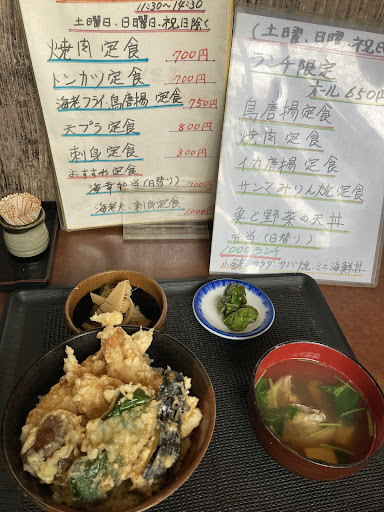 11:30~14:30
(土曜日、日曜日、祝日除く
焼肉定食 700円
トンカツ定食 700円
海老フライ、鳥唐揚定食 750円
天プラ定食 800円
刺身定食 800円
おすすめ定食
海幸弁当(日替り) 700円
海老天、刺身定食 1000円
(土曜、日曜、祝日
ランチ限定
オール650円
鳥唐揚定食
焼肉定食
イカ唐揚定食
サンマみりん焼定食
魚と野菜の天丼
弁当(日替り)
1000ランチ
サラダ サバ焼 ミニ海鮮丼